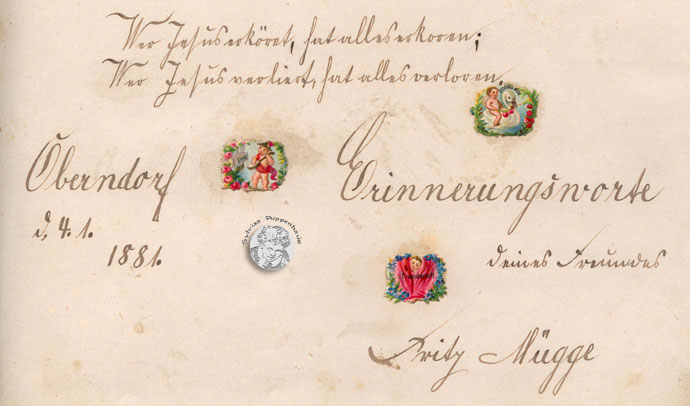 Wer Jesus erköret, hat alles erkoren;
Wer Jesus verliert, hat alles verloren.
Oberndorf
d. 4. 1.
1881.
Erinnerungsworte
deines Freundes
Fritz Mügge
Sylvias Puppenheim